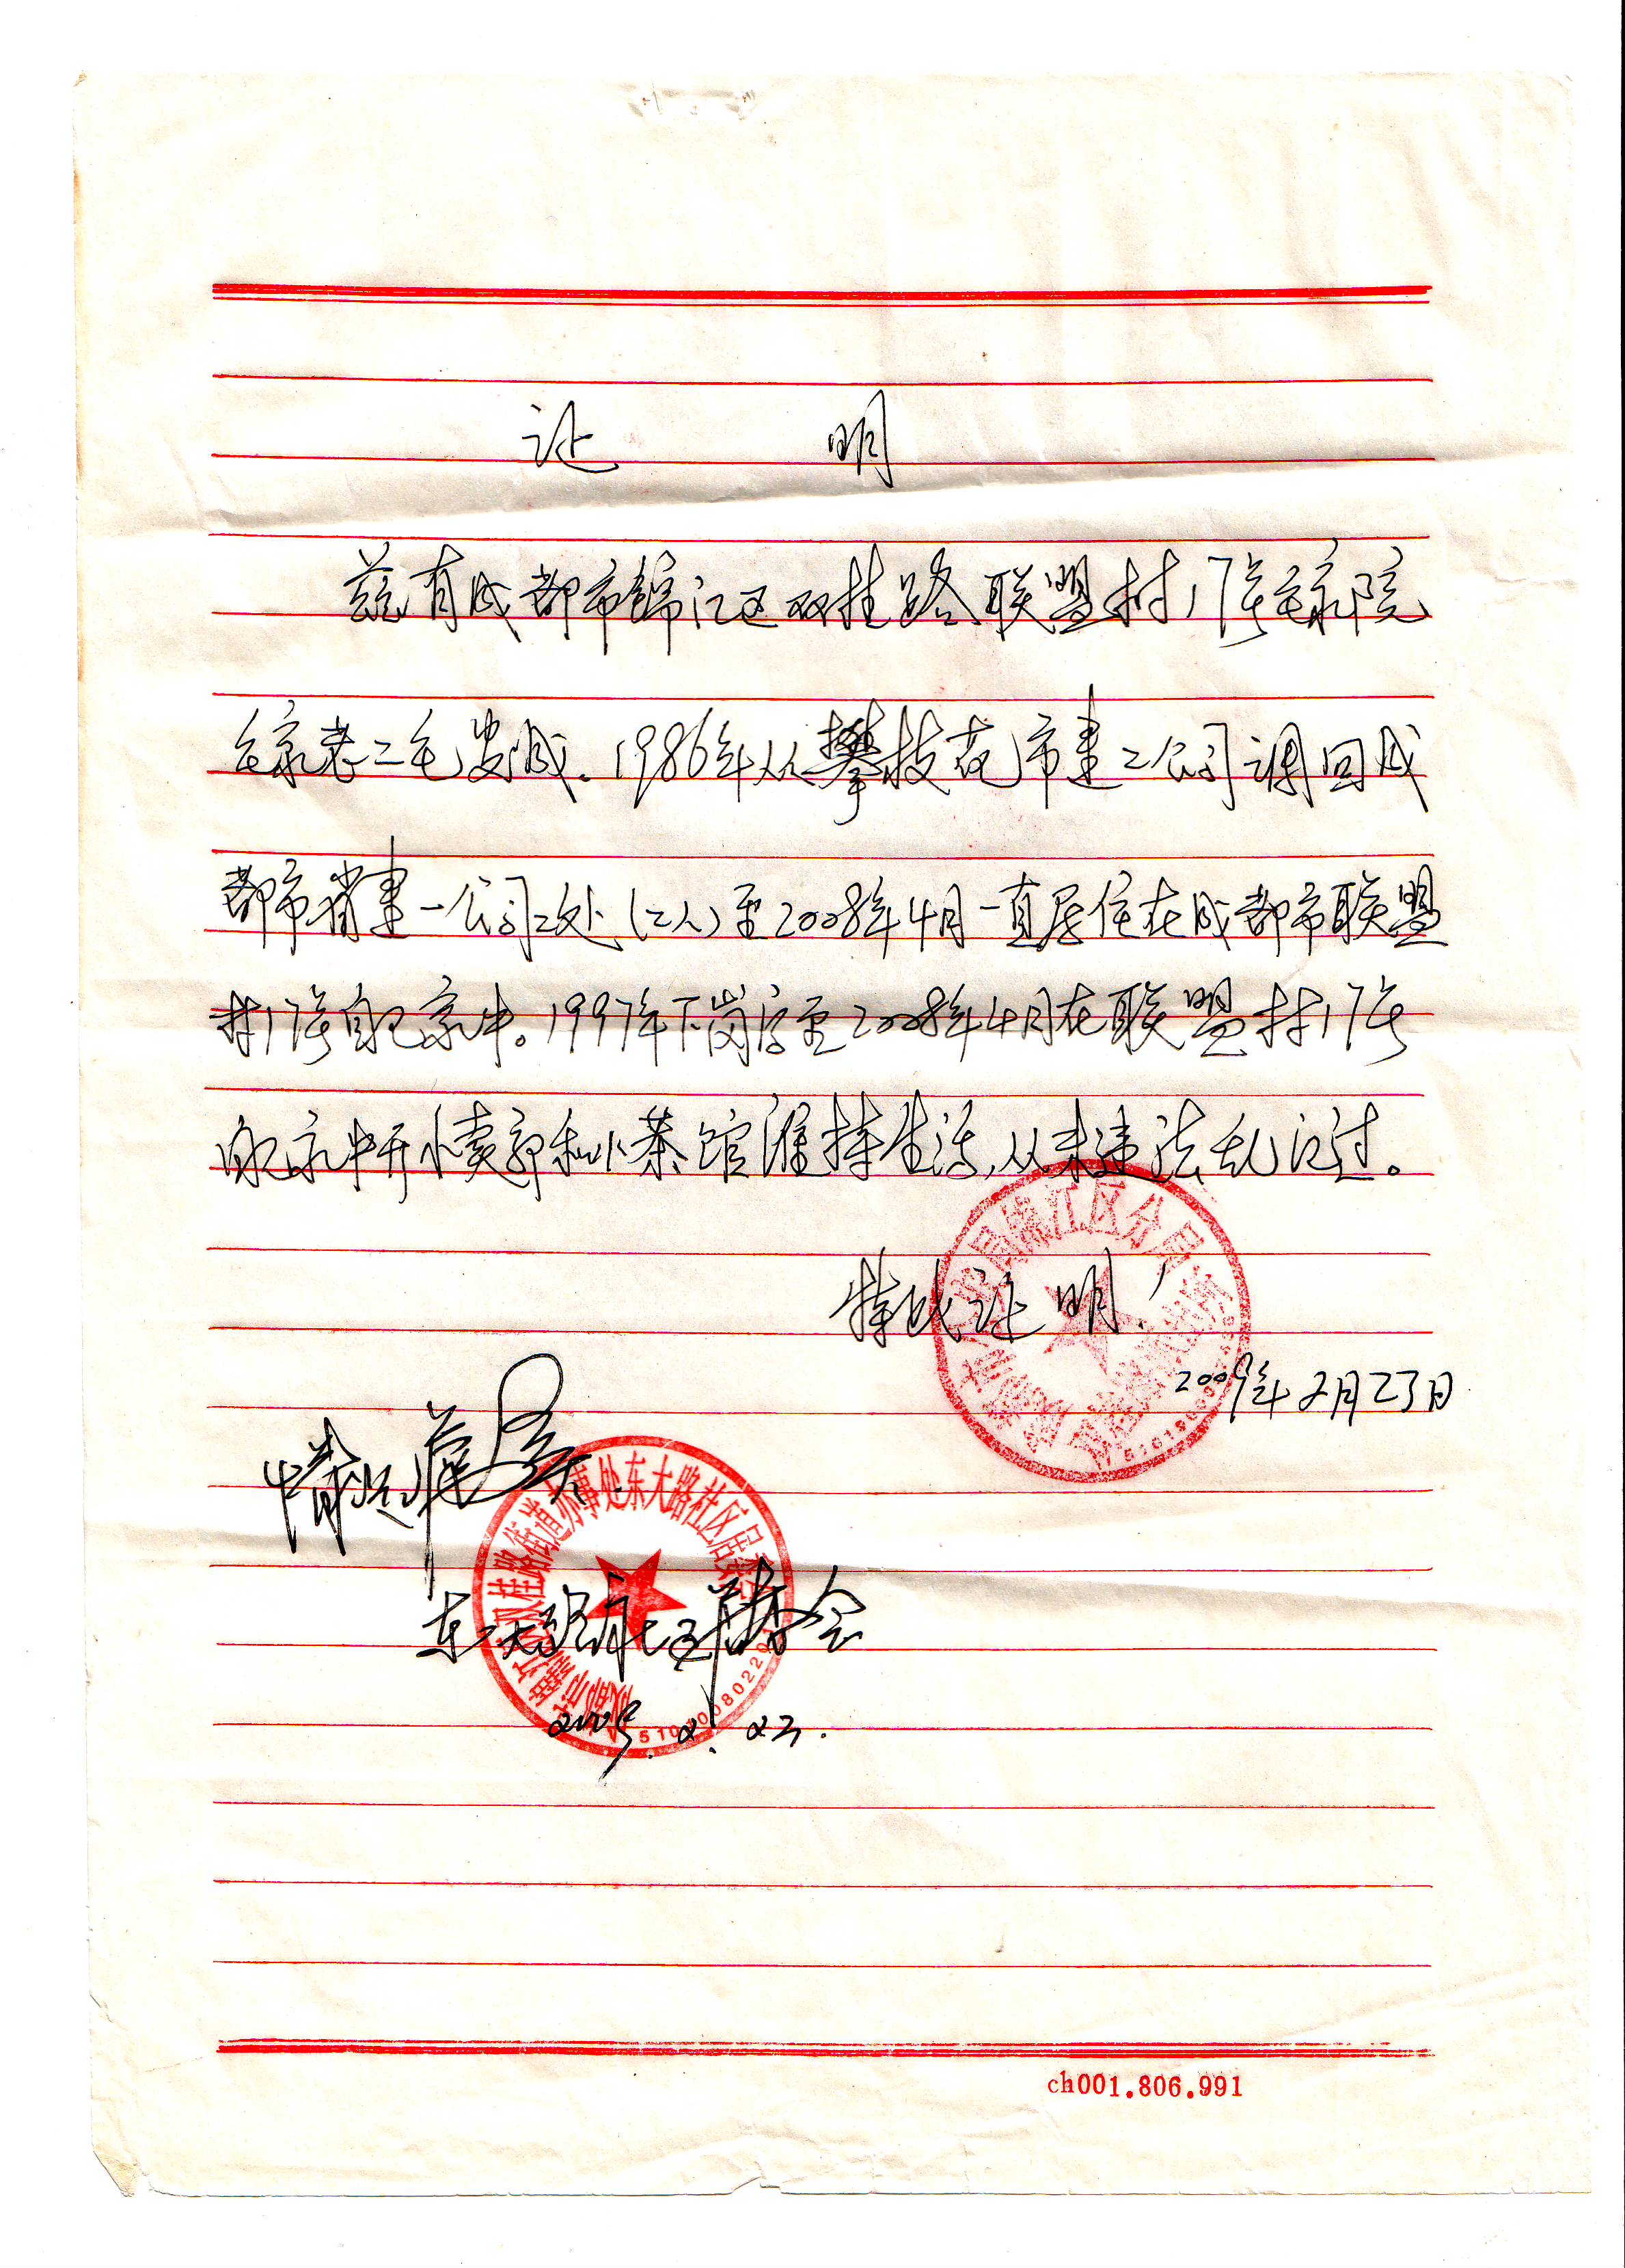 证 明
兹有成都市锦江区双桂路联盟村17号毛家院
毛家老二毛发成、1986年从攀枝花市建二公司调回成
都市省建一公司二处(工人)至2008年4月一直居住在成都市联盟
村17号自己家中。1997年下岗后至2008年4月在联盟村17号
自己家中开小卖部和小茶馆维持生活,从未违法乱纪过。
特此证明!
2009年2月23日
情况属实
东大路社区居委会
2009.2.23.
成都市公安局锦江区分局
成都市锦江区双桂路街道办事处东大路社区居委会
ch001.806.991